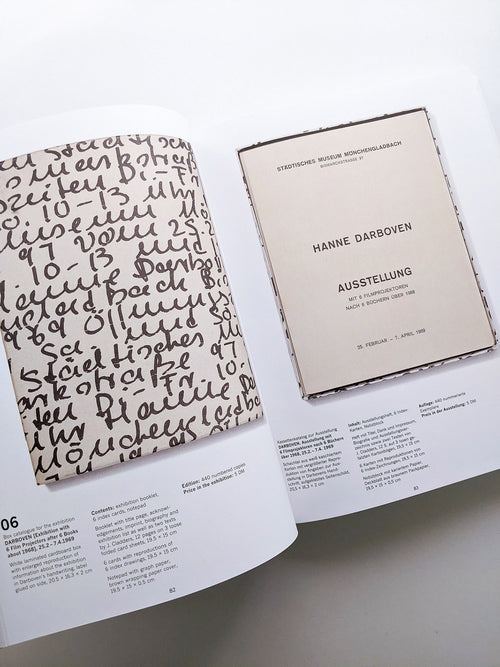 10-13 Uhr
97 vom 25.2
10-13 und
Hanne Darbo
1969 Öffnungs
Städtisches M
97
10
Uhr Hanne
Mönchengladba
06
Box catalogue for the exhibition
DARBOVEN [Exhibition with
6 Film Projectors after 6 Books
about 1968], 25.2.–7.4.1969
White laminated cardboard box
with enlarged reproduction of
information about the exhibition
in Darboven's handwriting, label
glued on side, 20.5 × 16.3 × 2 cm
Contents: exhibition booklet,
6 index cards, notepad
Booklet with title page, acknowl-
edgements, imprint, biography and
exhibition list as well as two texts
by J. Cladders, 12 pages on 3 loose
folded card sheets, 19.5 × 15 cm
6 cards with reproductions of
6 index drawings, 19.5 × 15 cm
Notepad with graph paper,
brown wrapping paper cover,
19.5 × 15 × 0.5 cm
Edition: 440 numbered copies
Price in the exhibition: 5 DM
82
STÄDTISCHES MUSEUM MÖNCHENGLADBACH
BISMARCKSTRASSE 97
HANNE DARBOVEN
AUSSTELLUNG
MIT 6 FILMPROJEKTOREN
NACH 6 BÜCHERN ÜBER 1968
25. FEBRUAR – 7. APRIL 1969
Kassettenkatalog zur Ausstellung
DARBOVEN, Ausstellung mit
6 Filmprojektoren nach 6 Büchern
über 1968, 25.2.–7.4.1969
Schachtel aus weiß kaschiertem
Karton mit vergrößerter Repro-
duktion von Angaben zur Aus-
stellung in Darbovens Hand-
schrift, eingeklebtes Seitenschild,
20,5 × 16,3 × 2 cm
Inhalt: Ausstellungsheft, 6 Index-
Karten, Notizblock
Heft mit Titel, Dank und Impressum,
Biografie und Ausstellungsver-
zeichnis sowie zwei Texten von
J. Cladders, 12 S. auf 3 losen ge-
falteten Kartonbögen, 19,5 × 15 cm
6 Karten mit Reproduktionen von
6 Index-zeichnungen, 19,5 × 15 cm
Notizblock mit kariertem Papier,
Deckblatt aus braunem Packpapier,
19,5 × 15 × 0,5 cm
Auflage: 440 nummerierte
Exemplare
Preis in der Ausstellung: 5 DM
83